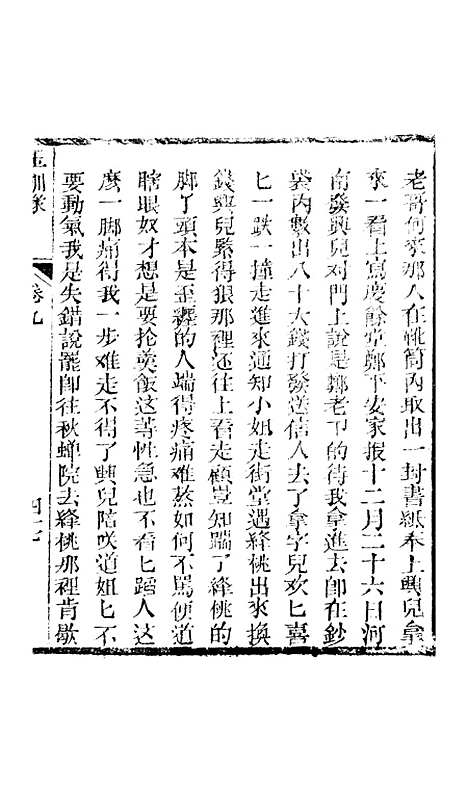 老哥何來那人在𢬵筒內取出一封書紙奉上興兒拿
來一看上寫慶餘堂鄭平安家報十二月二十六日河
南發興兒对門上說是鄭老下的待我拿進去卽在鈔
袋內數出八十大錢打發送信人去了拿字兒欢匕喜
匕一跌一撞走進來通知小姐走街堂遇絳桃出來換
錢興兒累得狠那裡还往上看走顧豈知踹了絳桃的
脚了頭本是歪纏的人踹得疼痛难熬如何不罵便道
瞎眼奴才想是要抢羮飯这等性急也不看匕踏人这
麽一脚痛得我一步难走不得了興兒陪咲道姐匕不
要動氣我是失錯說罷卽往秋蟬院去絳桃那裡肯歇
玉釧緣
卷九
四十七